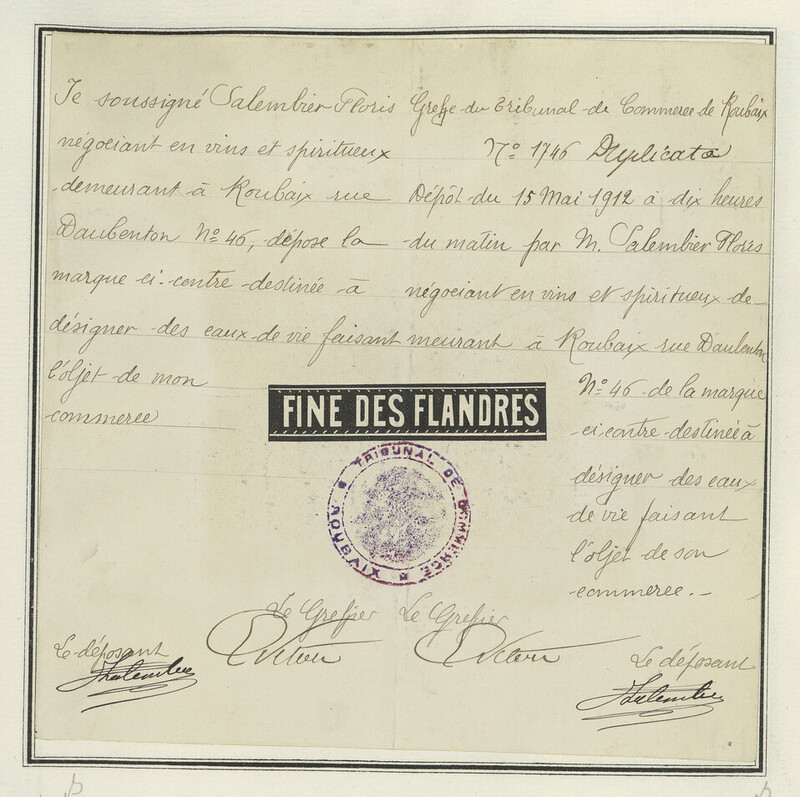 Je soussigné Salembier Floris
négociant en vins et spiritueux
demeurant à Roubaix rue
Daubenton N° 46, dépose la
marque ci-contre destinée à
désigner des eaux-de-vie faisant
l'objet de mon
commerce
Greffe du Tribunal de Commerce de Roubaix
N° 1746 Duplicata
Dépôt du 15 Mai 1912 à dix heures
du matin par M. Salembier Floris
négociant en vins et spiritueux de-
meurant à Roubaix rue Daubenton
N° 46 de la marque
ci-contre destinée à
désigner des eaux
de vie faisant
l'objet de son
commerce.-
FINE DES FLANDRES
TRIBUNAL DE COMMERCE
ROUBAIX
Le Greffier
Le Greffier
Le déposant
Le déposant